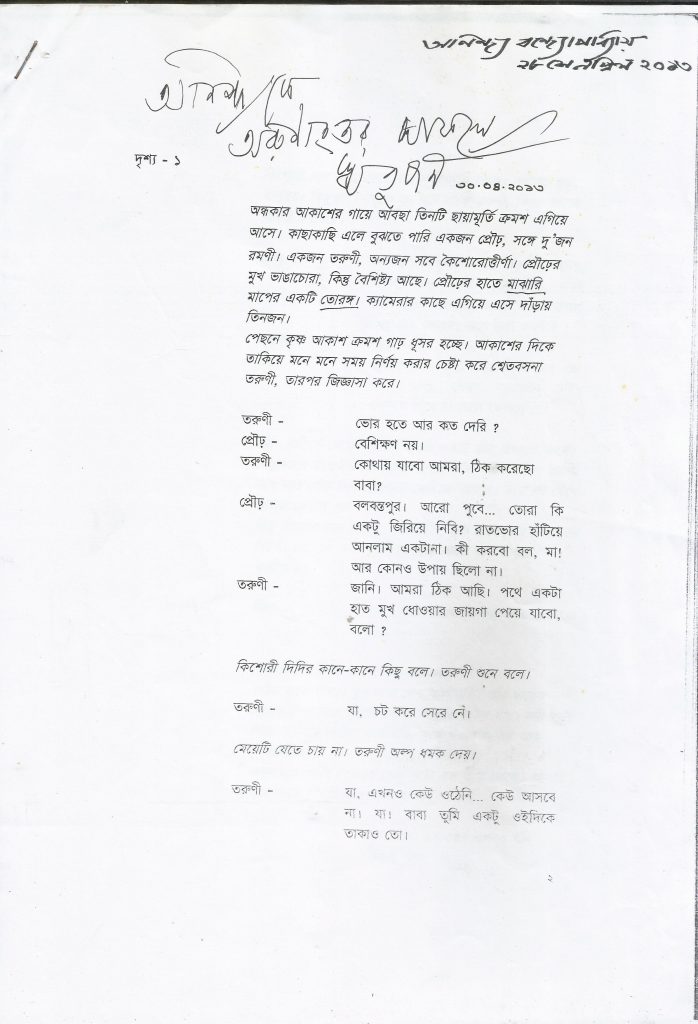 অনিন্দ্য বন্দ্যোপাধ্যায়
২৮ সেপ্টেম্বর ২০১৩
অনিন্দ্য কে
ঋতুপর্ণ
৩০.০৪.২০১৩
দৃশ্য - ১
অন্ধকার আকাশের গায়ে আবছা তিনটি ছায়ামূর্তি ক্রমশ এগিয়ে
আসে। কাছাকাছি এলে বুঝতে পারি একজন প্রৌঢ়, সঙ্গে দু'জন
রমণী। একজন তরুণী, অন্যজন সবে কৈশোরোত্তীর্ণা। প্রৌঢ়ের
মুখ ভাঙাচোরা, কিন্তু বৈশিষ্ট্য আছে। প্রৌঢ়ের হাতে মাঝারি
মাপের একটি তোরঙ্গ। ক্যামেরার কাছে এগিয়ে এসে দাঁড়ায়
তিনজন।
পেছনে কৃষ্ণ আকাশ ক্রমশ গাঢ় ধূসর হচ্ছে। আকাশের দিকে
তাকিয়ে মনে মনে সময় নির্ণয় করার চেষ্টা করে শ্বেতবসনা
তরুণী, তারপর জিজ্ঞাসা করে।
তরুণী - ভোর হতে আর কত দেরি ?
প্রৌঢ় - বেশিক্ষণ নয়।
তরুণী - কোথায় যাবো আমরা, ঠিক করেছো
বাবা?
প্রৌঢ় - বলবন্তপুর। আরো পুবে... তোরা কি
একটু জিরিয়ে নিবি? রাতভোর হাঁটিয়ে
আনলাম একটানা। কী করবো বল, মা!
আর কোনও উপায় ছিলো না।
তরুণী - জানি। আমরা ঠিক আছি। পথে একটা
হাত মুখ ধোওয়ার জায়গা পেয়ে যাবো,
বলো ?
কিশোরী দিদির কানে-কানে কিছু বলে। তরুণী শুনে বলে।
তরুণী - যা, চট করে সেরে নে।
মেয়েটি যেতে চায় না। তরুণী অল্প ধমক দেয়।
তরুণী - যা, এখনও কেউ ওঠেনি... কেউ আসবে
না। যা! বাবা তুমি একটু ওইদিকে
তাকাও তো।
২